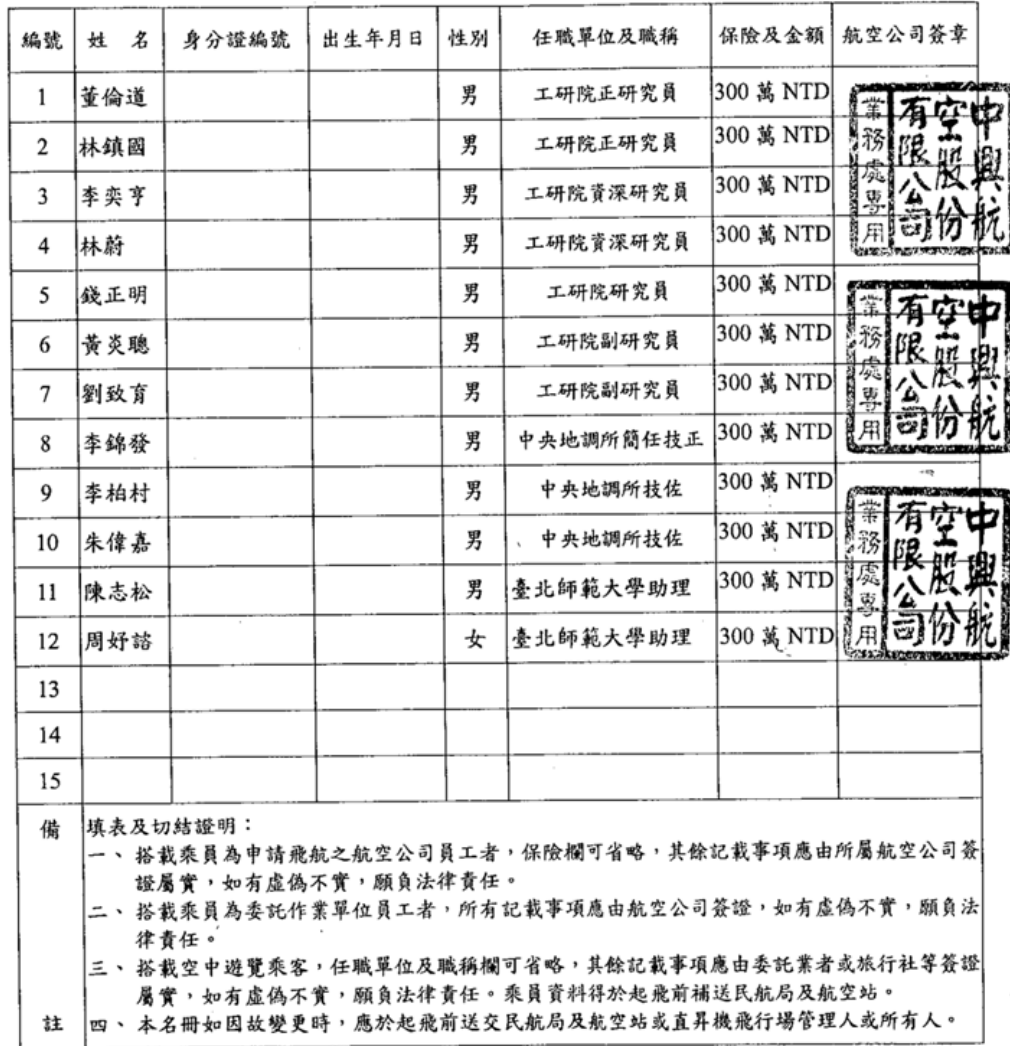 編號 姓 名 身分證編號 出生年月日 性別 任職單位及職稱 保險及金額 航空公司簽章
1 董倫道 男 工研院正研究員 300 萬 NTD
2 林鎮國 男 工研院正研究員 300 萬 NTD
3 李奕亨 男 工研院資深研究員 300 萬 NTD
4 林蔚 男 工研院資深研究員 300 萬 NTD
5 錢正明 男 工研院研究員 300 萬 NTD
6 黃炎聰 男 工研院副研究員 300 萬 NTD
7 劉致育 男 工研院副研究員 300 萬 NTD
8 李錦發 男 中央地調所簡任技正 300 萬 NTD
9 李柏村 男 中央地調所技佐 300 萬 NTD
10 朱偉嘉 男 中央地調所技佐 300 萬 NTD
11 陳志松 男 臺北師範大學助理 300 萬 NTD
12 周妤諮 女 臺北師範大學助理 300 萬 NTD
13
14
15
中興航
空股份
有限公司
業務處專用
中興航
空股份
有限公司
業務處專用
中興航
空股份
有限公司
業務處專用
備註
填表及切結證明：
一、搭載乘員為申請飛航之航空公司員工者，保險欄可省略，其餘記載事項應由所屬航空公司簽
證屬實，如有虛偽不實，願負法律責任。
二、搭載乘員為委託作業單位員工者，所有記載事項應由航空公司簽證，如有虛偽不實，願負法
律責任。
三、搭載空中遊覽乘客，任職單位及職稱欄可省略，其餘記載事項應由委託業者或旅行社等簽證
屬實，如有虛偽不實，願負法律責任。乘員資料得於起飛前補送民航局及航空站。
四、本名冊如因故變更時，應於起飛前送交民航局及航空站或直昇機飛行場管理人或所有人。